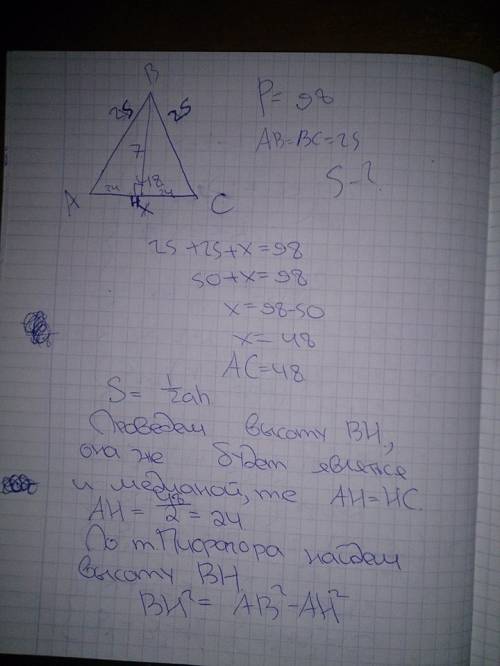 B
25 25
P= 98
AB=BC=25
S-?
7
48
24 24
A H x C
25+25+x=98
50+x=98
x=98-50
x= 48
AC=48
S= 1/2ah
Проведем высоту BH,
она же будет являтся
и медианой, те AH=HC.
AH= 48/2 = 24
По т.Пифагора найдем
высоту BH
BH²= AB²-AH²